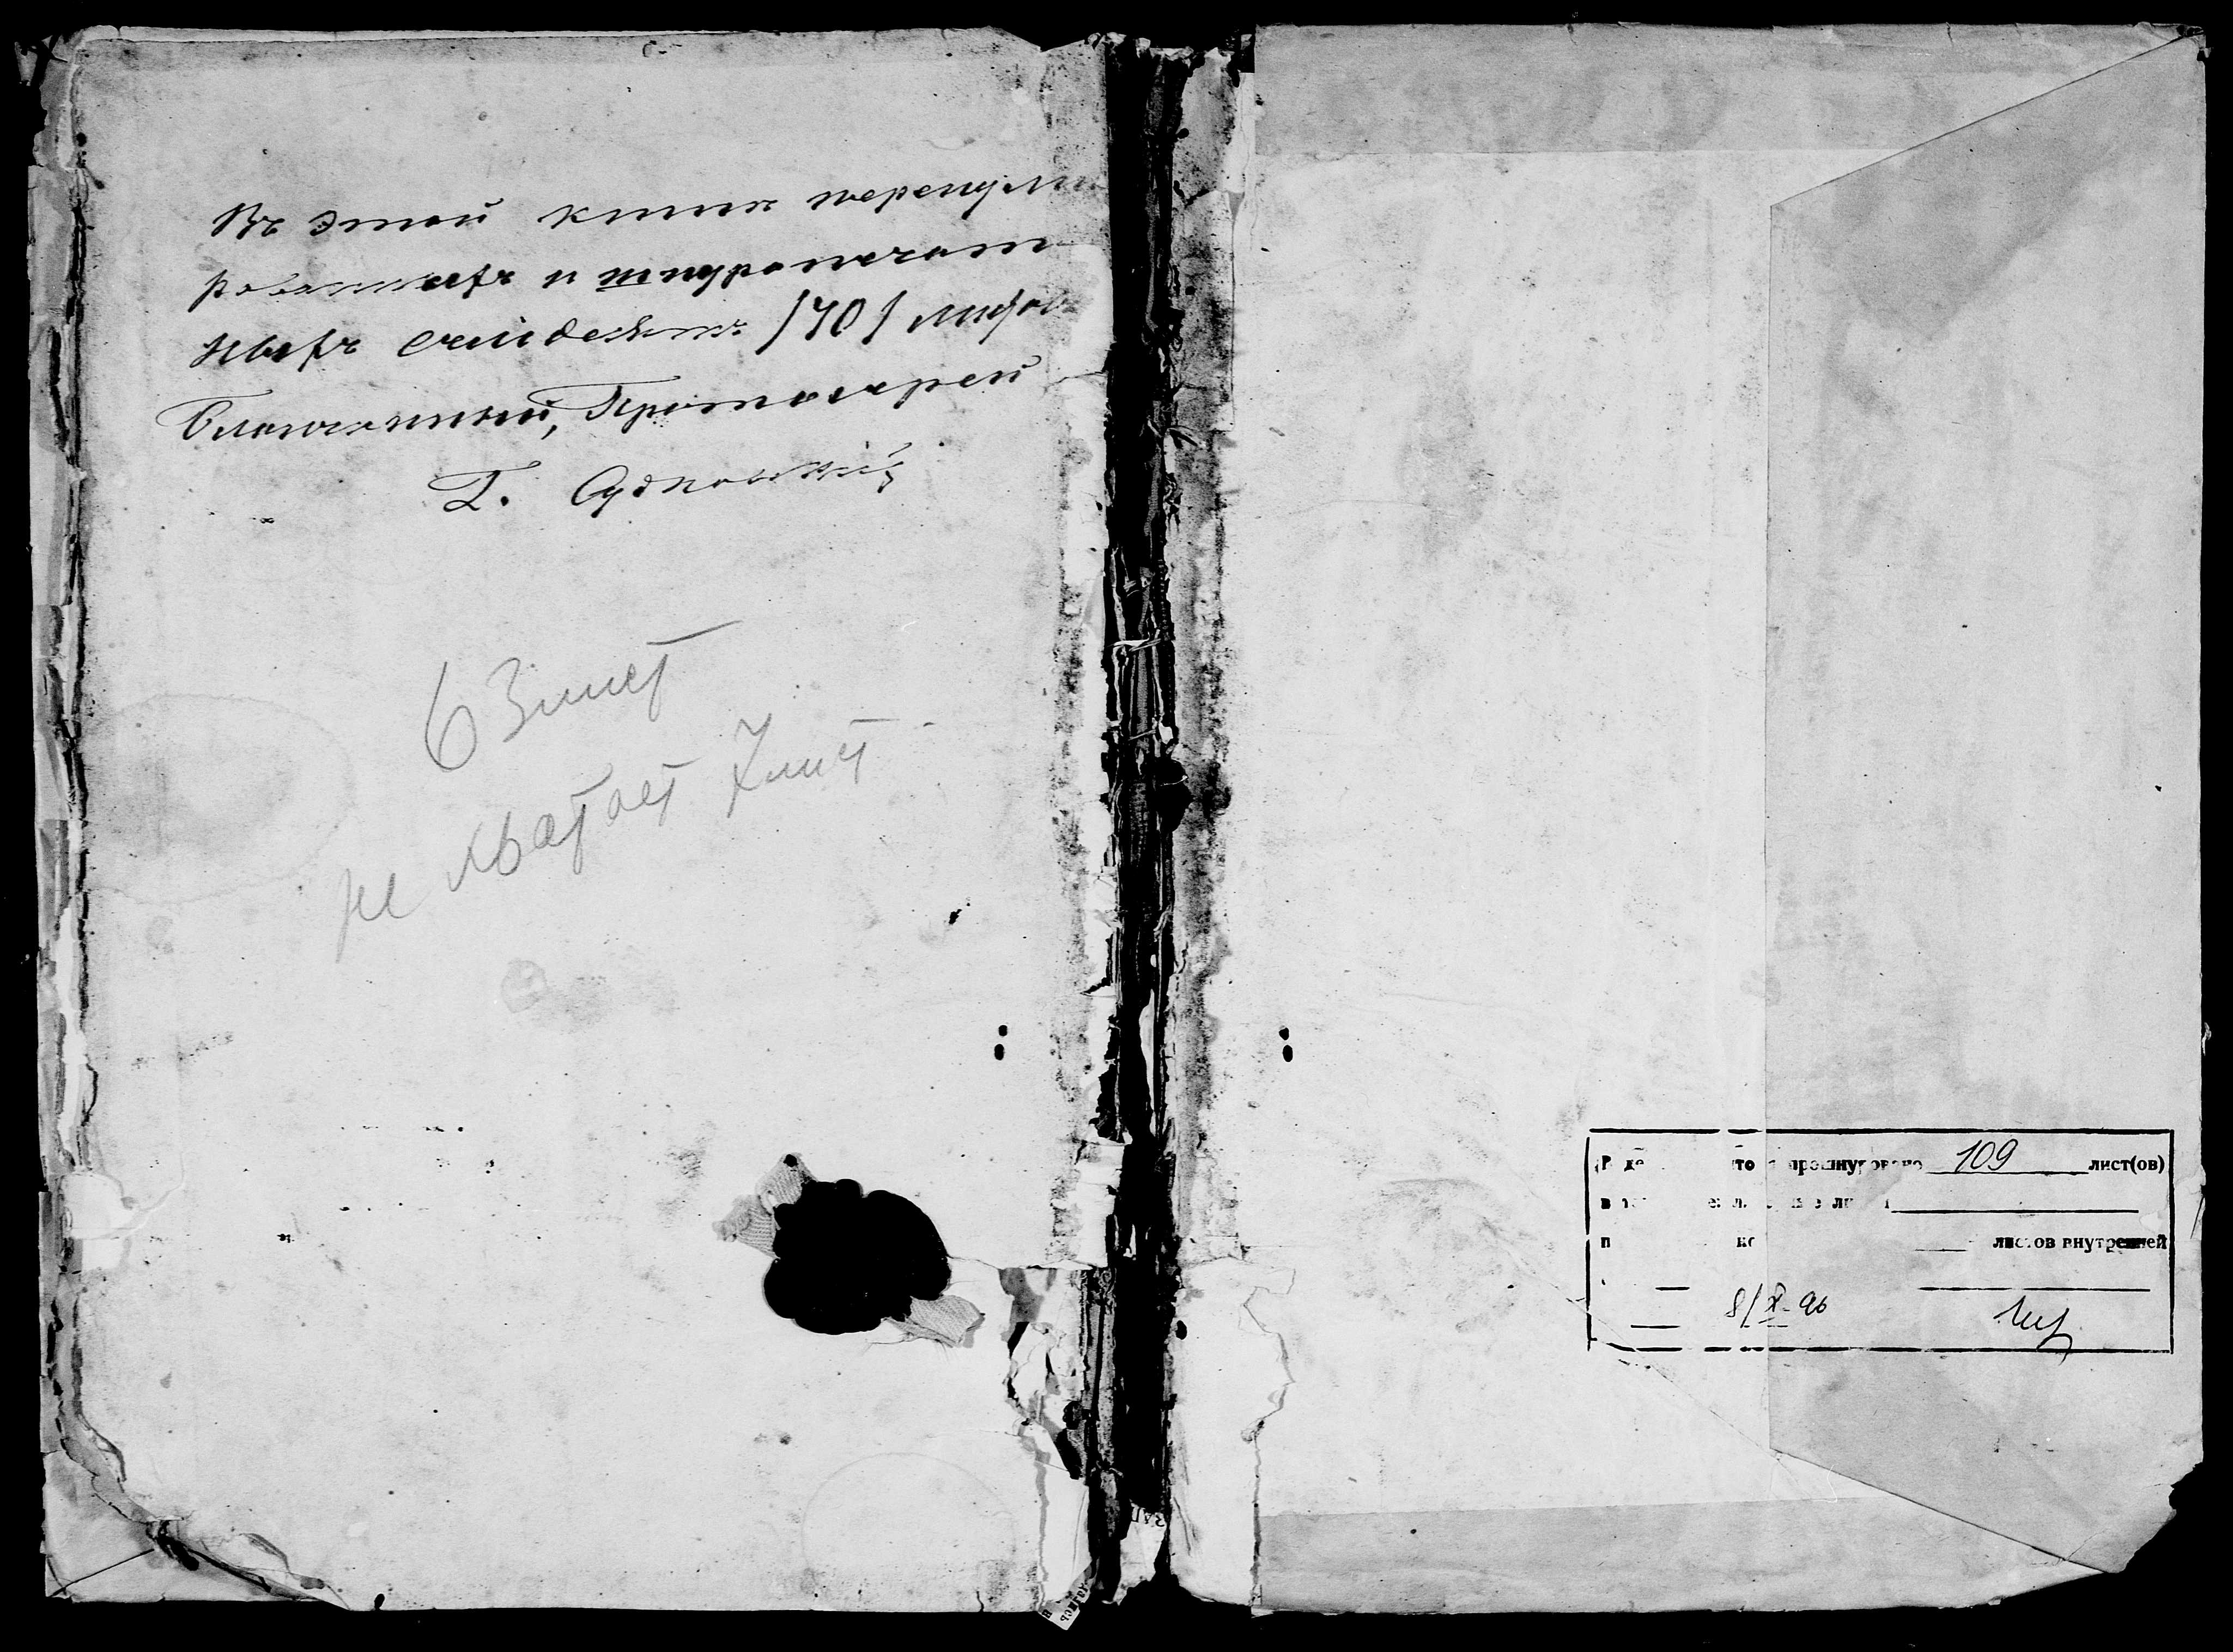 Въ этой книгѣ перенуме
рованныхъ и шнуропечат
ныхъ семьдесятъ /70/ листов
Благочинный, Протоіерей
Г. Судковскій
63 лист
не хватает 7 лист
прошнуровано 109 лист(ов)
листов внутренней
8/X-96